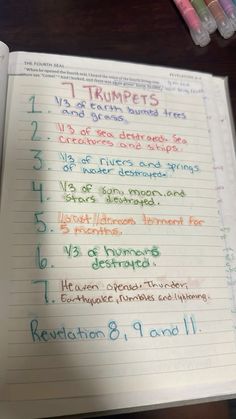 THE FOURTH SEAL
REVELATION
"When he opened the fourth seal, I heard the voice of the fourth living
7 TRUMPETS
1. 1/3 of earth burned trees
and grass.
2. 1/3 of sea destroyed. Sea
creatures and ships.
3. 1/3 of rivers and springs
of water destroyed.
4. 1/3 of sun, moon, and
stars destroyed.
5. locust//demons torment for
5 months.
6. 1/3 of humans
destroyed.
7. Heaven opened. Thunder,
Earthquake, rumbles and lightening.
Revelation 8, 9 and 11.